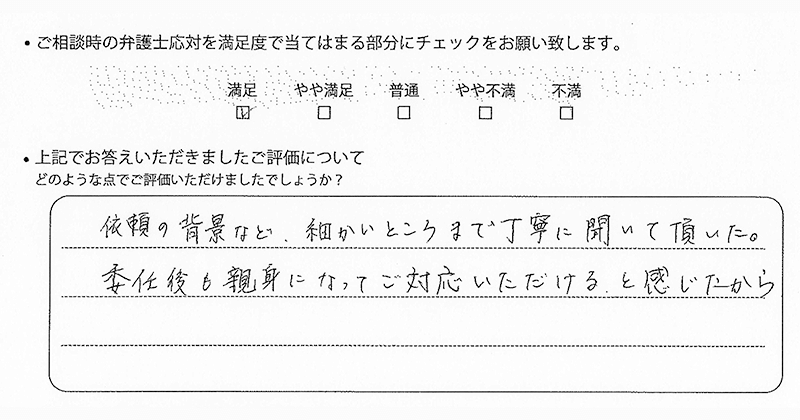 ・ご相談時の弁護士応対を満足度で当てはまる部分にチェックをお願い致します。
満足 やや満足 普通 やや不満 不満
☑ □ □ □ □
・上記でお答えいただきましたご評価について
どのような点でご評価いただけましたでしょうか?
依頼の背景など、細かいところまで丁寧に聞いて頂いた。
委任後も親身になってご対応いただける、と感じたから